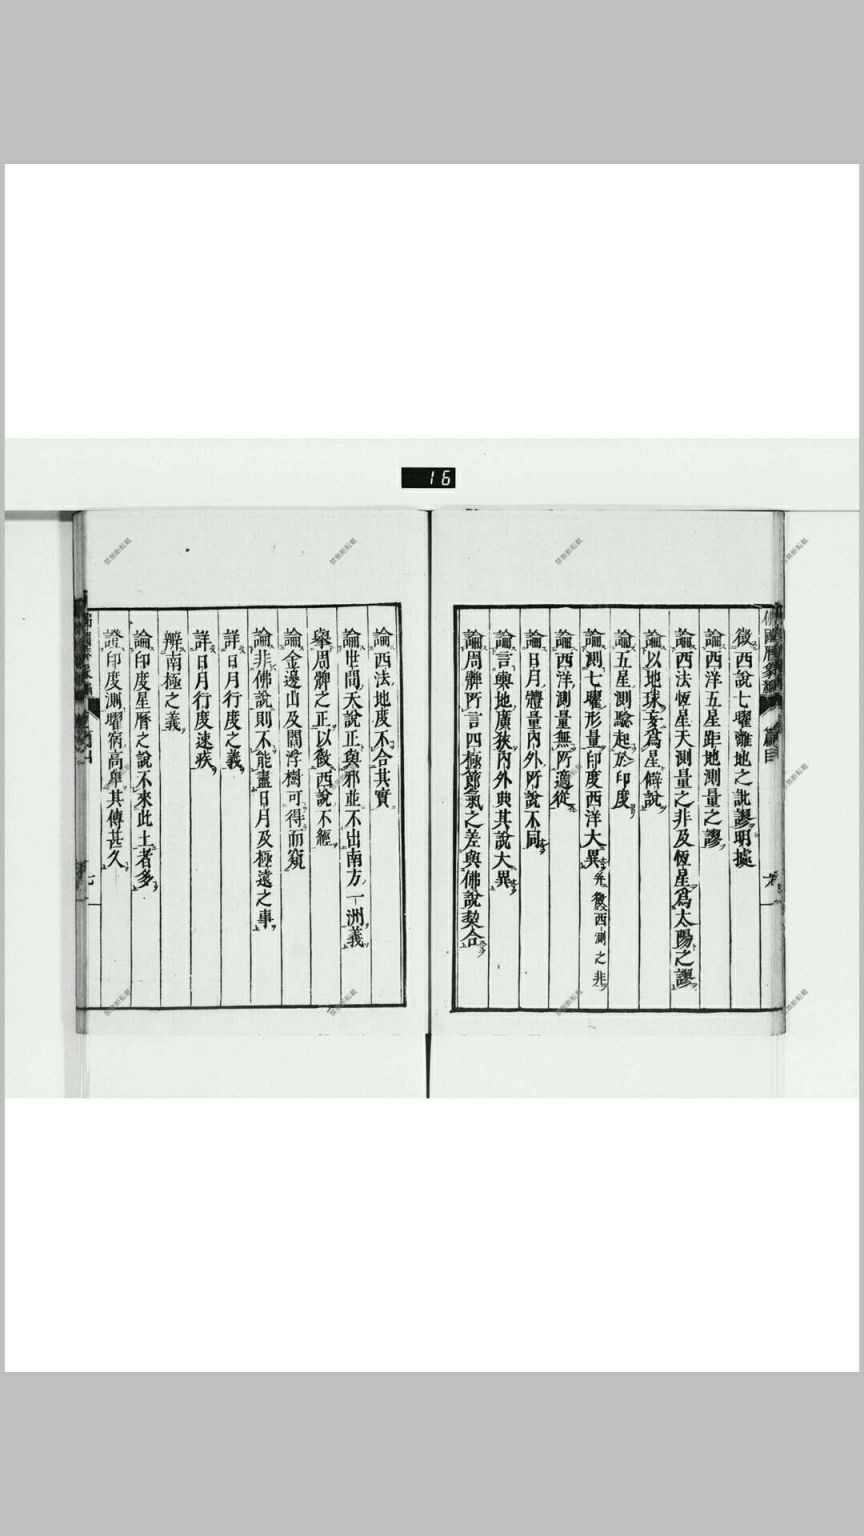 16
佛國曆象編
篇目
徵西說七曜離地之訛謬明據
論西洋五星距地測量之謬
論西法恆星天測量之非及恆星為太陽之謬
論以地球妄為星僻說
論五星測驗起於印度
論測七曜形量印度西洋大異
徵西測之非
論西洋測量無所適從
論日月體量內外所說不同
論言輿地廣狹內外典其說大異
論周髀所言四極節氣之差與佛說契合
論西法地度不合其實
論世間天說正與邪並不出南方一洲義
舉周髀之正以徵西說不經
論金邊山及閻浮樹可得而窺
論非佛說則不能盡日月及極遠之事
詳日月行度之義
詳日月行度速疾
辨南極之義
論印度星曆之說不來此土者多
證印度測曜宿高卑其傳甚久
七
禁無断転載
禁無断転載
禁無断転載
禁無断転載
禁無断転載
禁無断転載
禁無断転載
禁無断転載